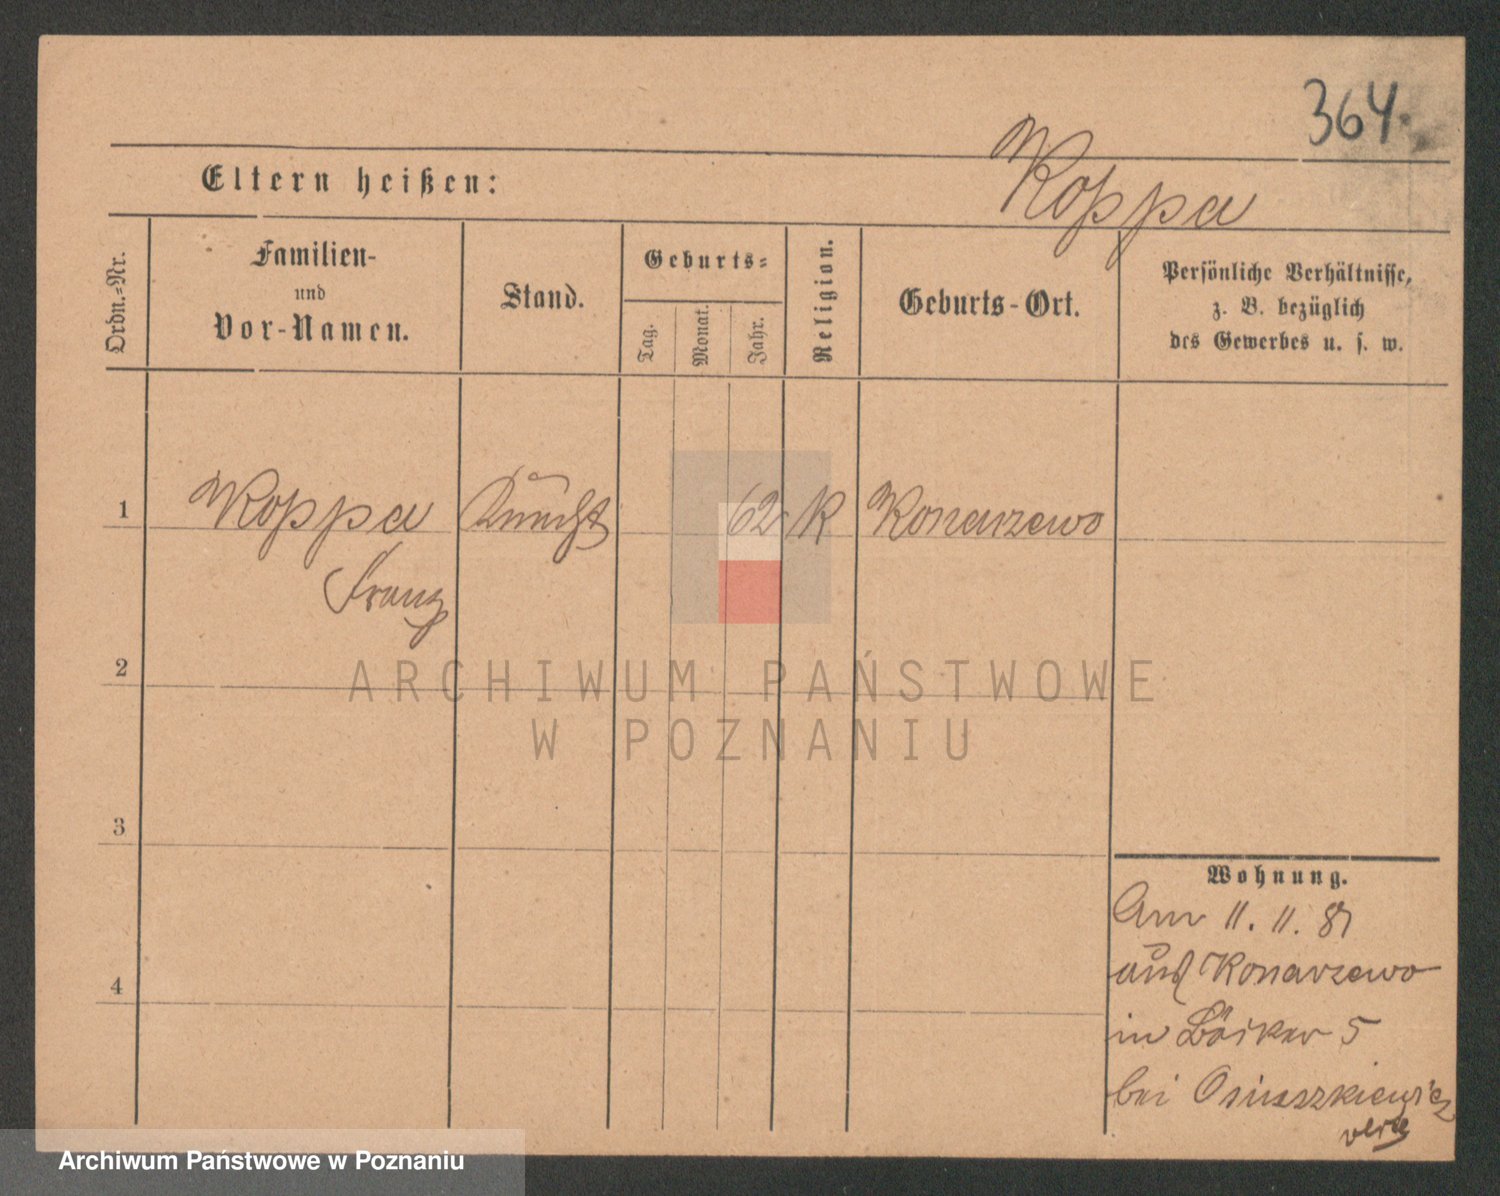 364.
Koppa
Eltern heißen:
Ordn.-Nr.
Familien-
und
Vor-Namen.
Stand.
Geburts-
Tag.
Monat.
Jahr.
Religion.
Geburts-Ort.
Persönliche Verhältnisse,
z. B. bezüglich
des Gewerbes u. s. w.
1 Koppa Knecht 62 K Konarzewo
Franz
2
3
4
Wohnung.
Am 11. 11. 81
aus Konarzewo
in 5
bei
ARCHIWUM PAŃSTWOWE
W POZNANIU
Archiwum Państwowe w Poznaniu